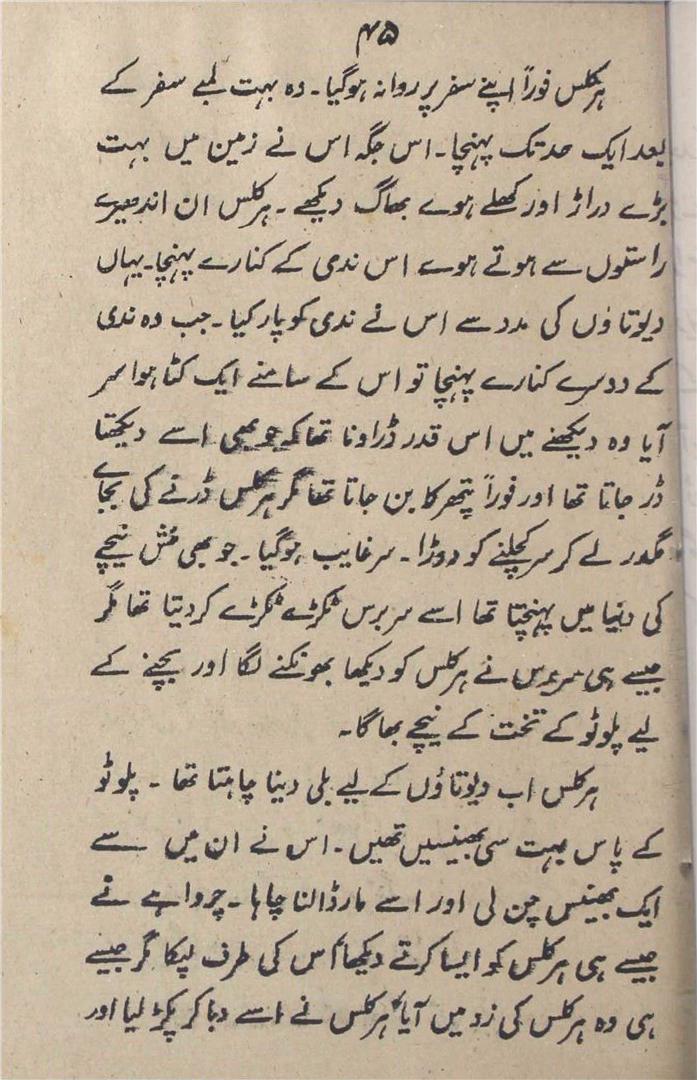 ۴۵
ہرکلس فوراً اپنے سفر پر روانہ ہوگیا۔ وہ بہت لمبے سفر کے
بعد ایک حد تک پہنچا۔ اس جگہ اس نے زمین میں بہت
بڑے دراڑ اور کھلے ہوے بھاگ دیکھے۔ ہرکلس ان اندھیرے
راستوں سے ہوتے ہوے اس ندی کے کنارے پہنچا۔ یہاں
دیوتاوں کی مدد سے اس نے ندی کو پار کیا۔ جب وہ ندی
کے دوسرے کنارے پہنچا تو اس کے سامنے ایک کٹا ہوا سر
آیا وہ دیکھنے میں اس قدر ڈراونا تھا کہ جو بھی اسے دیکھتا
ڈر جاتا تھا اور فوراً پتھر کا بن جاتا تھا مگر ہرکلس ڈرنے کی بجاے
مگدر لے کر سر کچلنے کو دوڑا۔ سر غایب ہوگیا۔ جو بھی مُنش نیچے
کی دنیا میں پہنچتا تھا اسے سربرس ٹکڑے ٹکڑے کر دیتا تھا مگر
جیسے ہی سربرس نے ہرکلس کو دیکھا بھونکنے لگا اور بچنے کے
لیے پلوٹو کے تخت کے نیچے بھاگا۔
ہرکلس اب دیوتاؤں کے لیے بلی دینا چاہتا تھا ۔ پلوٹو
کے پاس بہت سی بھینسیں تھیں۔ اس نے ان میں سے
ایک بھینس چن لی اور اسے مار ڈالنا چاہا۔ چرواہے نے
جیسے ہی ہرکلس کو ایسا کرتے دیکھا اُس کی طرف لپکا مگر جیسے
ہی وہ ہرکلس کی زد میں آیا ہرکلس نے اسے دبا کر پکڑ لیا اور